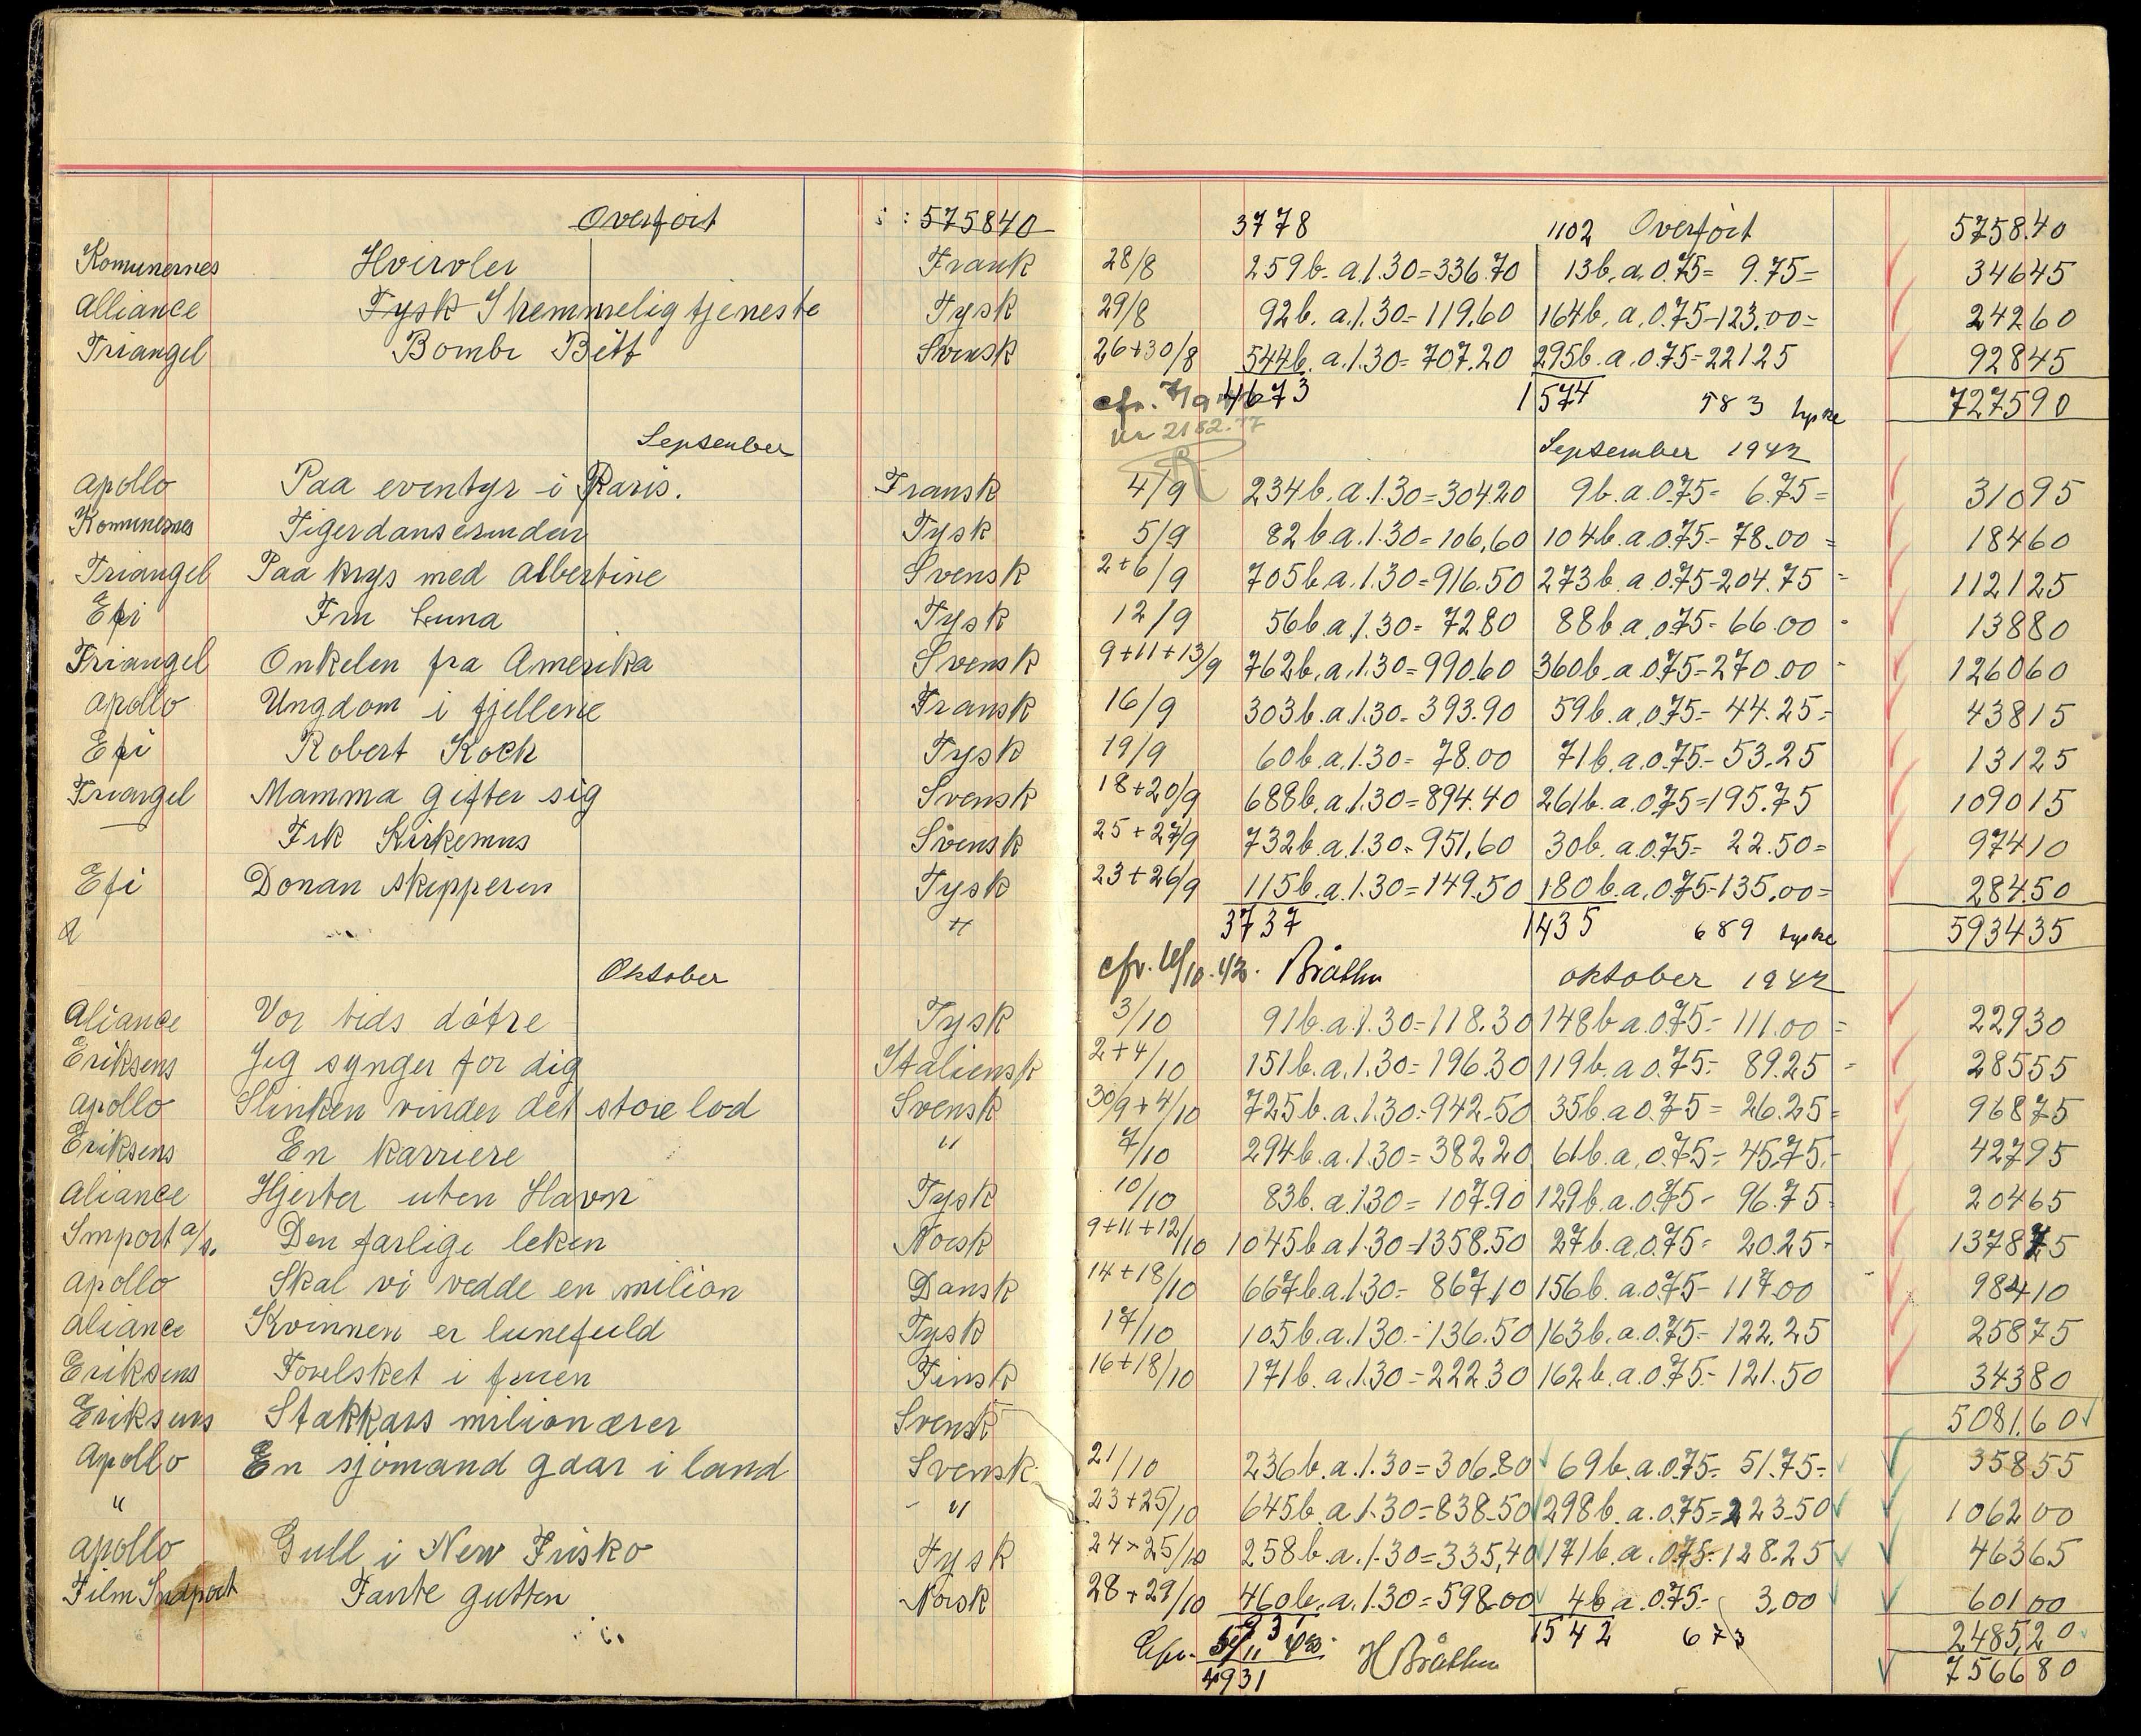 Overført : 575840 3778 1102 Overført 5758.40
Komunernes Hvirvler Fransk 28/8 259b. a.1.30=336.70 13b. a.0.75= 9.75= 34645
Alliance Tysk I hemmelig tjeneste Tysk 29/8 92b. a.1.30=119.60 164b. a.0.75-123.00= 24260
Triangel Bombi Bitt Svensk 26+30/8 544b. a.1.30=707.20 295b. a.0.75=22125 92845
cfr. 7/9 4673 1574 583 tyske 727590
Nr 2182.77
September September 1942
Apollo Paa eventyr i Paris. Fransk 4/9 234b. a.1.30=30420 9b. a.0.75= 6.75= 31095
Komunernes Tigerdanserinder Tysk 5/9 82b a.1.30=106,60 104b. a.0.75= 78.00= 18460
Triangel Paa krys med Albertine Svensk 2+6/9 705b. a.1.30=916.50 273b. a 0.75-204.75= 112125
Efi Fru Luna Tysk 12/9 56b. a.1.30= 7280 88b a.0.75= 66.00 - 13880
Triangel Onkelen fra Amerika Svensk 9+11+13/9 762b. a.1.30=990.60 360b. a 0.75=270.00 - 126060
Apollo Ungdom i fjellene Fransk 16/9 303b. a.1.30=393.90 59b. a.0.75= 44.25= 43815
Efi Robert Kock Tysk 19/9 60b. a.1.30= 78.00 71b. a.0.75- 53.25 13125
Triangel Mamma gifter sig Svensk 18+20/9 688b. a.1.30=894.40 261b. a.0.75=195.75 109015
— Frk Kirkemus Svensk 25+27/9 732b. a.1.30=951,60 30b. a.0.75= 22.50= 97410
Efi Donan skipperen Tysk 23+26/9 115b. a.1.30=149.50 180b. a.0.75-135,00= 28450
a " 3737 1435 689 tyske 593435
Oktober cfr. 6/10.42. Bråthen oktober 1942
Aliance Vor tids døtre Tysk 3/10 91b. a.1.30=118.30 148b a.0.75= 111.00= 22930
Eriksens Jeg synger for dig Italiensk 2+4/10 151b. a.1.30=196.30 119b. a 0.75= 89.25 - 28555
Apollo Slinken vinder det store lod Svensk 30/9+4/10 725b. a.1.30=942.50 35b. a 0.75= 26.25= 96875
Eriksens En karriere " 7/10 294b. a.1.30=38220 61b. a.0.75= 45.75.- 42795
Aliance Hjerter uten Havn Tysk 10/10 83b. a.1.30= 107.90 129b. a.0.75- 96.75- 20465
Import a/s. Den farlige leken Norsk 9+11+12/10 1045b a 1.30=1358.50 27b. a.0.75= 20.25- 137875
Apollo Skal vi vedde en milion Dansk 14+18/10 667b. a.1.30= 86710 156b. a.0.75- 117.00 98410
Aliance Kvinnen er lunefuld Tysk 17/10 105b. a.1.30-136.50 163b. a.0.75- 122.25 25875
Eriksens Forelsket i fruen Finsk 16+18/10 171b. a.1.30=22230 162b. a.0.75- 121.50 34380
Eriksens Stakkars milionærer Svensk 5081,60
Apollo En sjømand gaar i land Svensk 21/10 236b. a.1.30=306.80 69b. a.0.75= 51.75= 35855
" " 23+25/10 645b. a.1.30=838.50 298b. a.0.75=223.50 106200
Apollo Gull i New Frisko Tysk 24+25/10 258b. a.1.30=335,40 171b. a.0.75-128.25 46365
Film Import Fante gutten Norsk 28+29/10 460b. a.1.30=598.00 4b a.0.75- 3,00 60100
Cfr. 1542 673 2485,20
4931 H Bråthen 756680